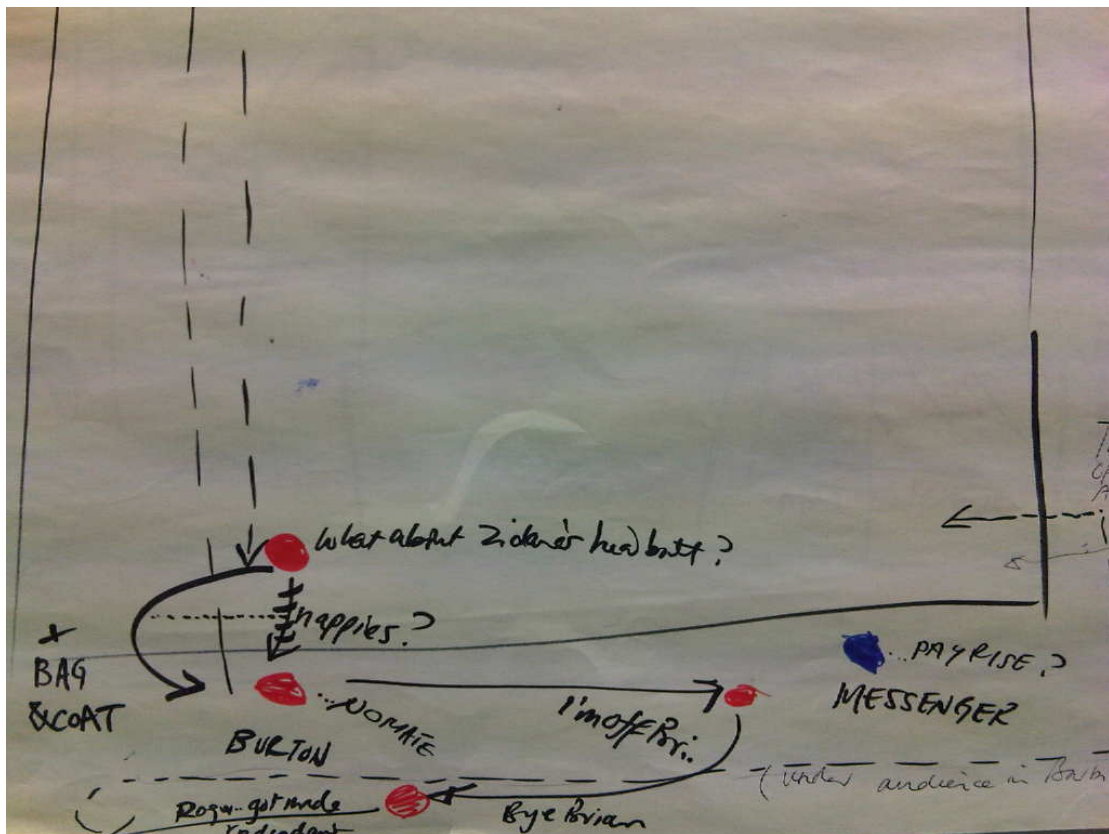 What about Zidane's headbutt?
nappies?
+
BAG
& COAT
...NO MATE
BURTON
I'm off Bri..
...PAYRISE?
MESSENGER
(under audience in
Bye Brian
Roger..got made
redundant